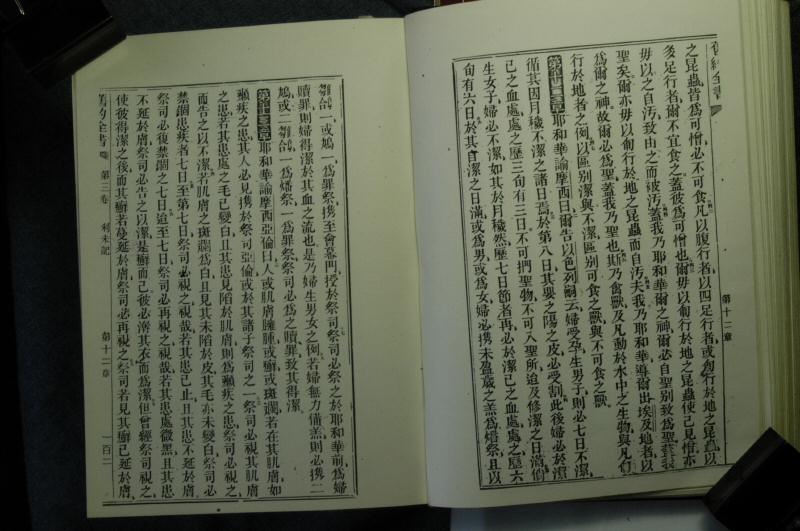 舊約全書
之昆蟲皆爲可憎必不可食凡以腹行者以四足行者或匍行於地之昆蟲以
多足行者爾不宜食之蓋彼爲可憎也爾毋以匍行於地之昆蟲使己見憎亦
毋以之自汚致由之而被汚蓋我乃耶和華爾之神爾必自聖別致爲聖蓋我
聖矣爾亦毋以匍行於地之昆蟲而自汚夫我乃耶和華導爾出埃及地者以
爲爾之神故爾必爲聖蓋我乃聖也斯乃禽獸及凡動於水中之生物與凡匍
行於地者之例以區別潔與不潔區別可食之獸與不可食之獸
耶和華諭摩西曰爾告以色列嗣云婦受孕生男子則必七日不潔
循其因月穢不潔之諸日焉於第八日其嬰之陽之皮必受割此後婦必於潔
己之血處處之歷三旬有三日不可捫聖物不可入聖所迨及修潔之日滿倘
生女子婦必不潔如其於月穢然歷七日節者再必於潔己之血處處之歷六
旬有六日於其自潔之日滿或爲男或爲女婦必攜未盈歲之羔爲燔祭且以
第十二章
雛鴿一或鳩一爲罪祭攜至會幕門授於祭司祭司必祭之於耶和華前爲婦
贖罪則婦得潔於其血之流也是乃婦生男女之例若婦無力備羔則必攜二
鳩或二雛鴿一爲燔祭一爲罪祭祭司必爲之贖罪致其得潔
耶和華諭摩西亞倫曰人或肌膚臃腫或癬或斑斕若在其肌膚如
癩疾之患其人必見攜於祭司亞倫或於其諸子祭司之一祭司必視其肌膚
之患若其患處之毛已變白且其患見陷於肌膚則爲癩疾之患祭司必視之
而告之以不潔若肌膚之斑斕爲白且見其未陷於皮其毛亦未變白祭司必
禁錮患疾者七日至第七日祭司必視之視哉若其患已止且其患不延於膚
祭司必復禁錮之七日迨至七日祭司必再視之視哉若其患處微黑且其患
不延於膚祭司必告之以潔是癬而已彼必澣其衣而爲潔但曾經祭司視之
使彼得潔之後而其癬若蔓延於膚祭司必再視之祭司若見其癬已延於膚
舊約全書 第三卷 利未記 第十二章 一百二